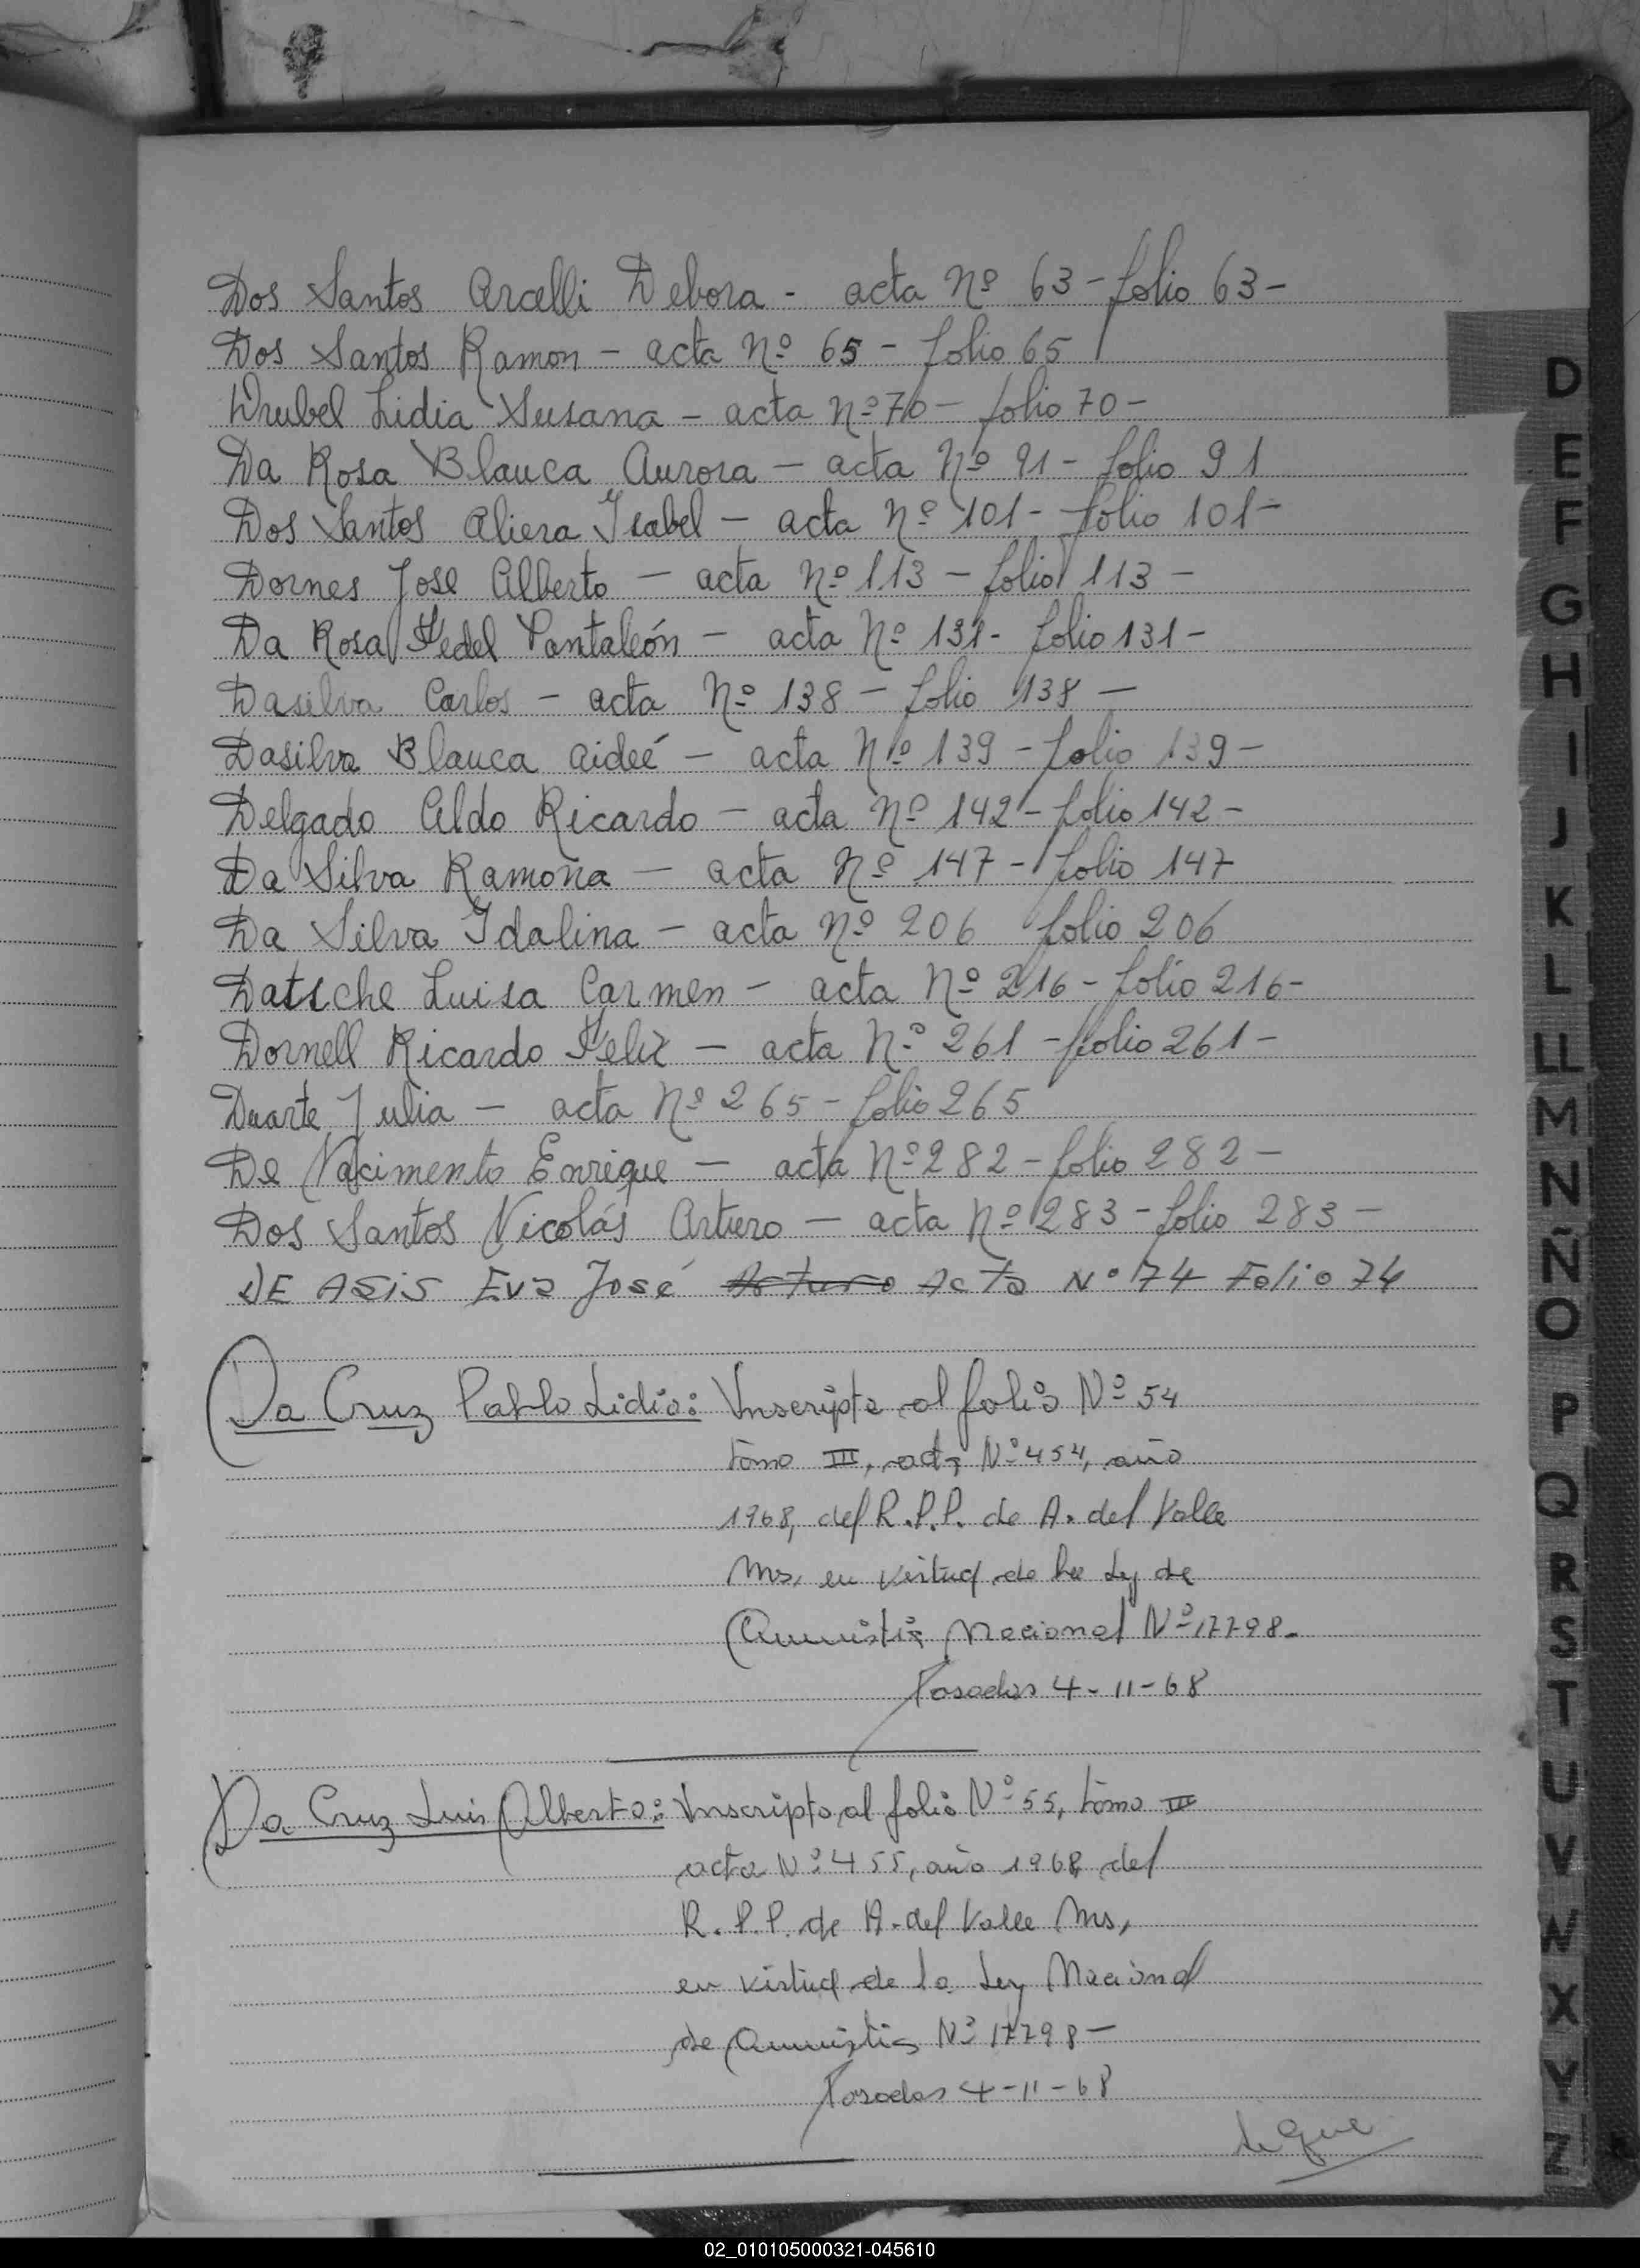 Dos Santos Arcelli Debora - acta Nº 63 - folio 63 -
Dos Santos Ramon - acta Nº 65 - folio 65
Drubel Lidia Susana - acta Nº 70 - folio 70 -
Da Rosa Blanca Aurora - acta Nº 91 - folio 91
Dos Santos Aliera Isabel - acta Nº 101 - folio 101 -
Dornes Jose Alberto - acta Nº 113 - folio 113 -
Da Rosa Fedel Pantaleón - acta Nº 131 - folio 131 -
Dasilva Carlos - acta Nº 138 - folio 138 -
Dasilva Blanca Aideé - acta Nº 139 - folio 139 -
Delgado Aldo Ricardo - acta Nº 142 - folio 142 -
Da Silva Ramona - acta Nº 147 - folio 147
Da Silva Idalina - acta Nº 206 folio 206
Datsche Luisa Carmen - acta Nº 216 - folio 216 -
Dornell Ricardo Felix - acta Nº 261 - folio 261 -
Duarte Julia - acta Nº 265 - folio 265
De Nacimento Enrique - acta Nº 282 - folio 282 -
Dos Santos Nicolás Arturo - acta Nº 283 - folio 283 -
DE ASIS Eva José Arturo Acta Nº 74 Folio 74
Da Cruz Pablo Lidio: Inscripto al folio Nº 54
tomo III, acta Nº 454, año
1968, del R.P.P. de A. del Valle
Ms, en virtud de la Ley de
Amnistia Nacional Nº 17798.-
Posadas 4-11-68
Da Cruz Luis Alberto: Inscripto al folio Nº 55, tomo III
acta Nº 455, año 1968 del
R.P.P. de A. del Valle Ms,
en virtud de la Ley Nacional
de Amnistia Nº 17798 -
Posadas 4-11-68
Sigue
D
E
F
G
H
I
J
K
L
LL
M
N
Ñ
O
P
Q
R
S
T
U
V
W
X
Y
Z
02_010105000321-045610